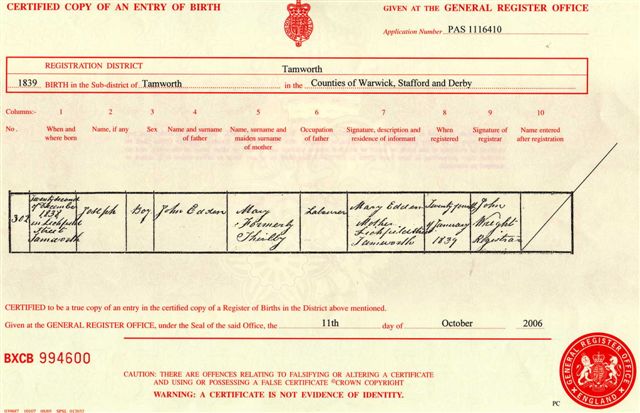 CERTIFIED COPY OF AN ENTRY OF BIRTH
GIVEN AT THE GENERAL REGISTER OFFICE
Application Number PAS 1116410
REGISTRATION DISTRICT Tamworth
1839 BIRTH in the Sub-district of Tamworth in the Counties of Warwick, Stafford and Derby
Columns:- 1 2 3 4 5 6 7 8 9 10
No. When and where born Name, if any Sex Name and surname of father Name, surname and maiden surname of mother Occupation of father Signature, description and residence of informant When registered Signature of registrar Name entered after registration
302 Twenty second of December 1838 in Lichfield Street Tamworth
Joseph
Boy
John Edden
Mary Formerly
Labourer
Mary Edden Mother Lichfield Street Tamworth
Twenty fourth of January 1839
John Wright Registrar
CERTIFIED to be a true copy of an entry in the certified copy of a Register of Births in the District above mentioned.
Given at the GENERAL REGISTER OFFICE, under the Seal of the said Office, the 11th day of October 2006
BXCB 994600
CAUTION: THERE ARE OFFENCES RELATING TO FALSIFYING OR ALTERING A CERTIFICATE
AND USING OR POSSESSING A FALSE CERTIFICATE ©CROWN COPYRIGHT
WARNING: A CERTIFICATE IS NOT EVIDENCE OF IDENTITY.
GENERAL REGISTER OFFICE
ENGLAND
PC